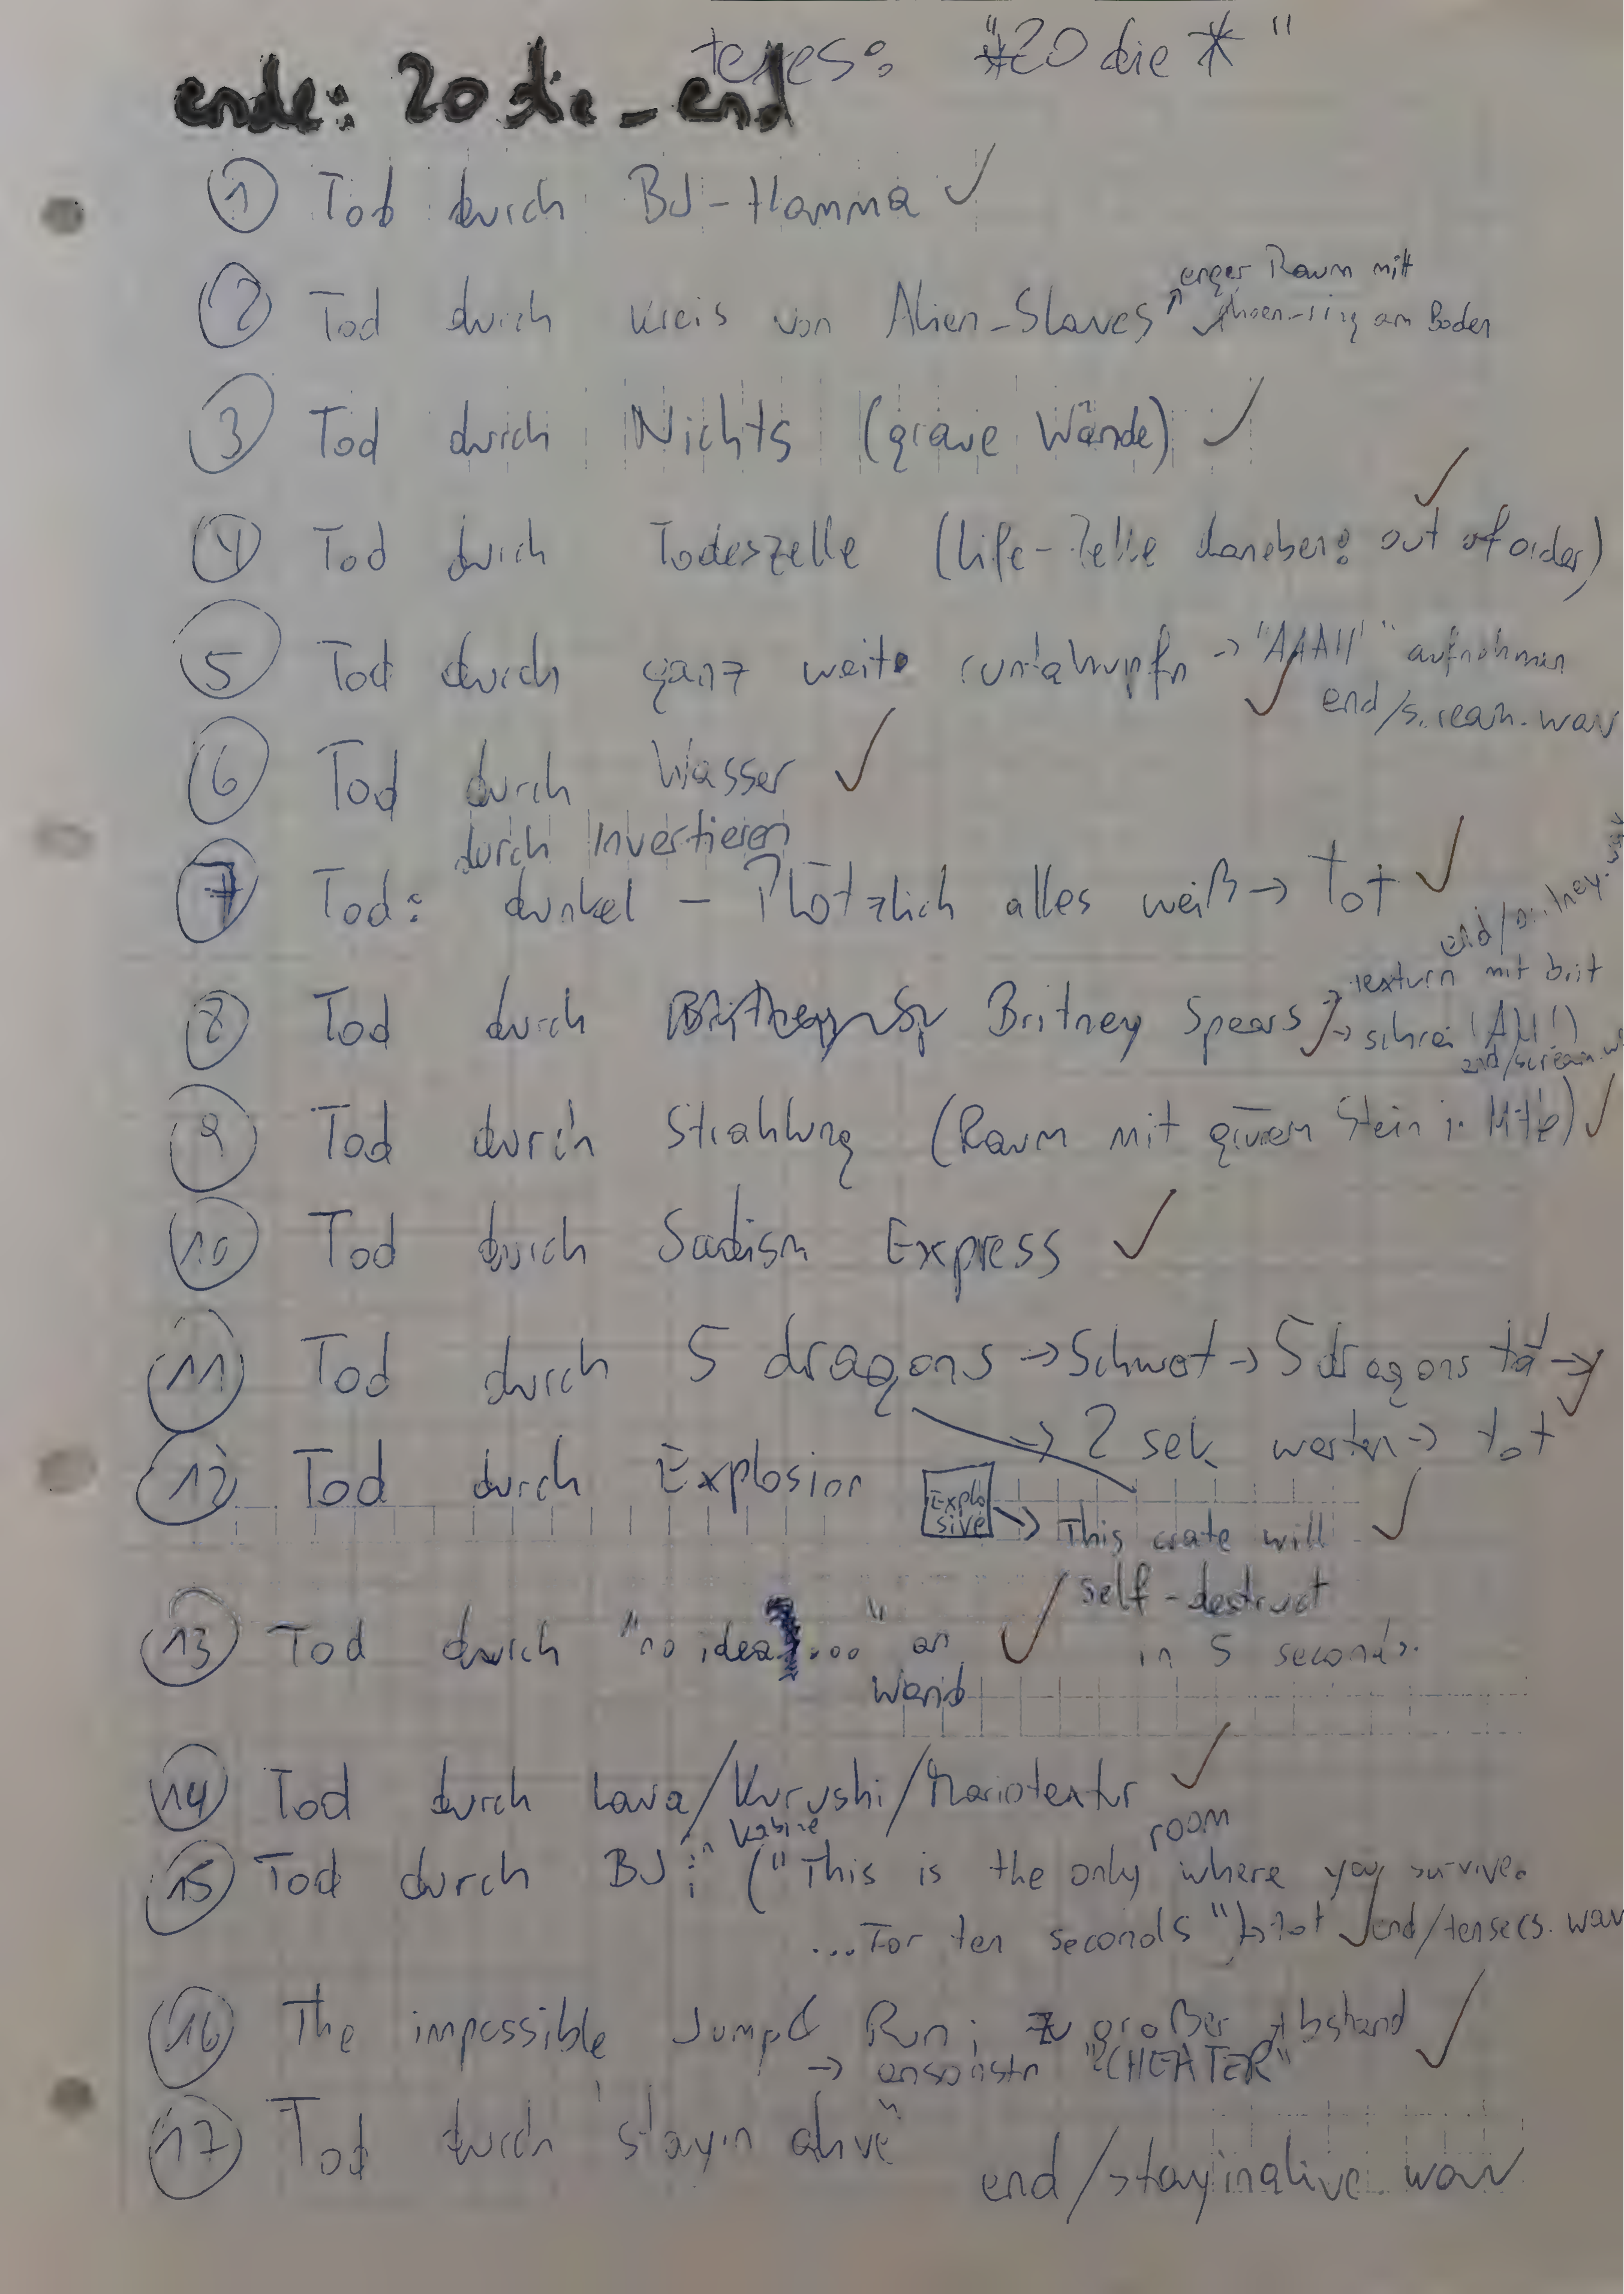 texes: "*20 die *"
ende: 20 die_end
1 Tod durch BJ-Hamma ✓
enger Raum mit
2 Tod durch Kreis von Alien-Slaves ↗ ✓ am Boden
3 Tod durch Nichts (graue Wände) ✓
4 Tod durch Todeszelle (Life-Zelle daneben: out of order) ✓
5 Tod durch ganz weit runtahupfn → "AAAH" aufnehmen
✓ end/scream.wav
6 Tod durch Wasser ✓
durch Invertieren
7 Tod: dunkel - Plötzlich alles weiß → Tot ✓
8 Tod durch Britney Spears → texturn mit brit
→ schrei (AH!)
end/scream.w
9 Tod durch Strahlung (Raum mit grünem Stein in Mitte) ✓
10 Tod durch Sadism Express ✓
11 Tod durch 5 dragons → Schwert → 5 dragons →
→ 2 sek warten → tot ✓
12 Tod durch Explosion
Explo
sive → This crate will ✓
self-destruct
in 5 seconds.
13 Tod durch "no idea..." an ✓
Wand
14 Tod durch Lava/Kurushi/Mariotextur ✓
in Kabine
room
15 Tod durch BJ: ("This is the only where you survive.
...For ten seconds" → tot ✓ end/tensecs.wav
16 The impossible Jump& Run; zu großer Abstand ✓
→ ansonstn "CHEATER"
17 Tod durch "stayin alive"
end/stayinalive.wav